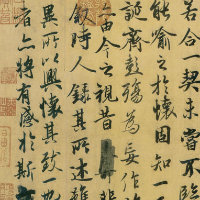 若合一契未嘗不臨
能喻之於懷固知一
誕齊彭殤為妄作
亦由今之視昔悲
敘時人錄其所述雖
異所以興懷其致
者亦將有感於斯